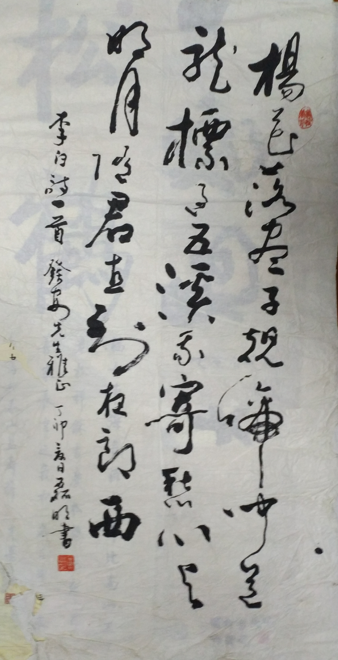 楊花落盡子規啼聞道
龍標過五溪我寄愁心與
明月隨君直到夜郎西
李白詩一首 發安先生雅正 丁卯夏日磊明書